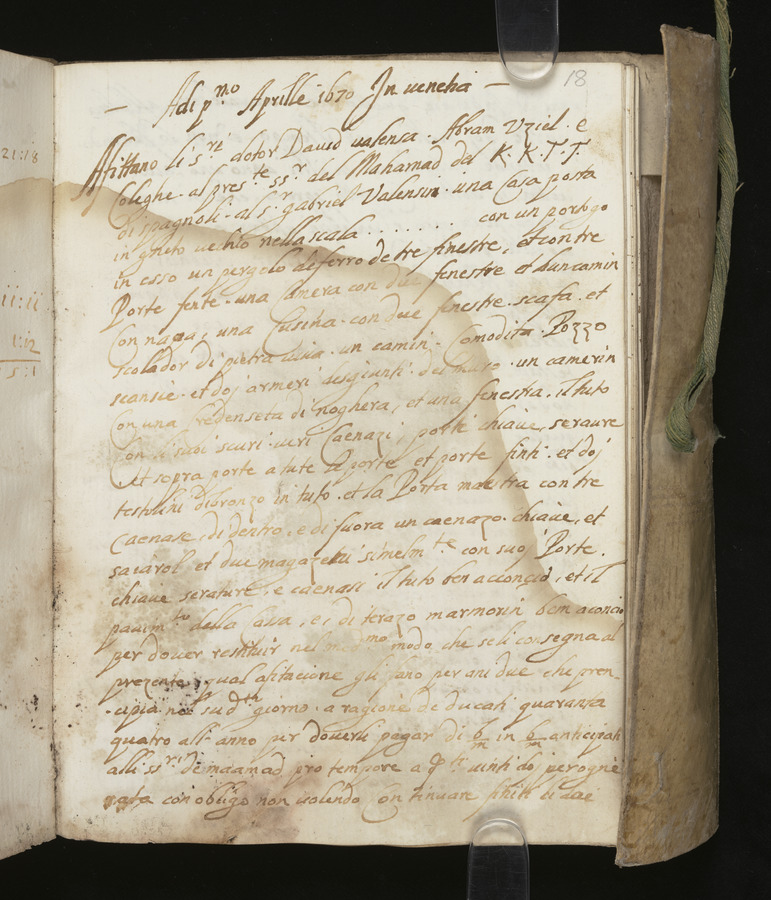 18
— Adi p.mo Aprille 1670 In venetia —
Afittano li s.ri dotor David valensa . Abram Uziel . e
Coleghe . al pres.te ss.r del Mahamad del K. K. T. T.
di spagnoli . al s.r gabriel Valensin . una Casa posta
in gheto vechio nella scala . . . . . . . . con un portego
in esso un pergolo di ferro de tre finestre, et con tre
Porte finte . una Camera con due fenestre et dun camin
Con napa, una Cusina . con due fenestre . scafa . et
scolador di pietra viva . un camin . Comodita . Pozzo
scansie . et doj armeri del muro . un camerin
Con una Credenseta di noghera, et una fenestra, il tuto
con li suoi scuri . veri Caenazi, porte chiave, serature
et sopra porte a tute porte et porte finti . et doj
di bronzo in tuto . et la Porta maestra con tre
Caenase, di dentro, e di fuora un caenazo . chiave, et
et due magazeni similm.te con suoj Porte .
chiave serature, e caenasi il tuto ben acconcio, et il
pavim.to della Casa, e di terazo marmorin bem aconcio
per dover restituir nel med.mo modo, che seli consegna al
prezente, qual afitacione gli fano per ani due che pren
cipia nel sud.to giorno . a ragione de ducati quaranta
quatro all anno per doverli pagar di 6/m in 6/m anticipati
alli ss.ri de maamad pro tempore a vinti doj per ogni
rata con obligo non volendo Continuare finiti li due
21:18
11:11
1:12
5:1